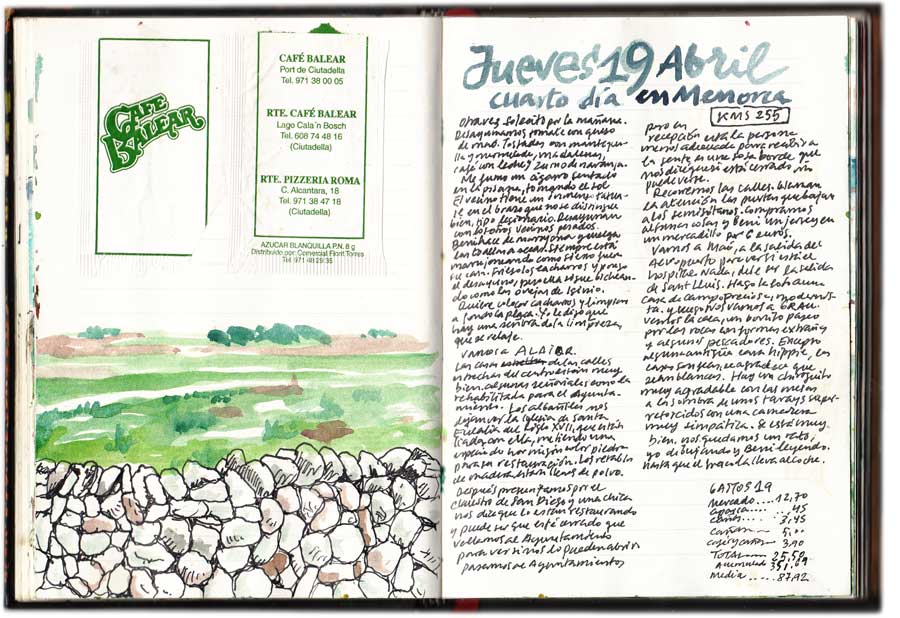 CAFE
BALEAR
CAFÉ BALEAR
Port de Ciutadella
Tel. 971 38 00 05
RTE. CAFÉ BALEAR
Lago Cala'n Bosch
Tel. 608 74 48 16
(Ciutadella)
RTE. PIZZERIA ROMA
C. Alcantara, 18
Tel. 971 38 47 18
(Ciutadella)
AZUCAR BLANQUILLA P.N. 8 g
Distribuido por: Comercial Florit Torres
Tel. 971 48 29 35
Jueves 19 Abril
cuarto día en Menorca
KMS 255
otra vez solecito por la mañana.
Desayunamos jamón con queso
de mao. Tostadas con mantequi-
lla y mermelada, madalenas,
café con leche y zumo de naranja.
Me fumo un cigarro sentado
en la piscina, tomando el sol
El vecino tiene un inmenso tatua-
je en el brazo que no se distingue
bien, tipo legionario. Desayunan
con los otros vecinos pesados.
el desayuno, pero ella sigue
como las ovejas de
Quiere colocar cacharros y limpiar
a fondo la plaza. Yo le digo que
hay una señora de la limpieza,
que se relaje.
Vamos a ALAIOR.
Las casas de las calles
estrechas del centro están muy
bien. algunas señoriales como la
rehabilitada para el Ayunta-
miento. Los albañiles nos
dejan ver la iglesia de Santa
Eulalia del siglo XVII, que están
liados con ella, metiendo una
especie de hormigón color piedra
para su restauración. Los retablos
de madera están llenos de polvo.
Después preguntamos por el
claustro de San Diego y una chica
nos dice que lo están restaurando
y puede ser que esté cerrado que
vollamos al Ayuntamiento
para ver si nos lo pueden abrir
pasamos de Ayuntamientos
pero en
recepción está la persona
menos adecuada para recibir a
la gente, es una sosa borde que
nos dice que está cerrado, no
puede verse.
Recorremos las calles. Llaman
la atención las puertas que bajan
a los semisótanos. Compramos
algunas cosas y Beni un jersey en
un mercadillo por 6 euros.
Vamos a Maó, a la salida del
aeropuerto para ver si está el
hospital. Nada, debe ser la salida
de Sant Lluis. Hago la foto a una
casa de campo preciosa, modernis-
ta, y luego nos vamos a GRAU.
Vemos la cala, un bonito paseo
por las rocas con formas extrañas
y algunos pescadores. Excepto
alguna antigua casa hippie, las
casas son feas, se agradece que
sean blancas. Hay un chiringuito
muy agradable con las mesas
a la sombra de unos tarays super-
retorcidos con una camarera
muy simpática. Se está muy
bien, nos quedamos un rato,
yo dibujando y Beni leyendo.
GASTOS 19
mercado....12,70
....45
....3,45
cañas....5,00
café y cañas....3,90
TOTAL....25,50
Acumulado 351,69
media.....87,92